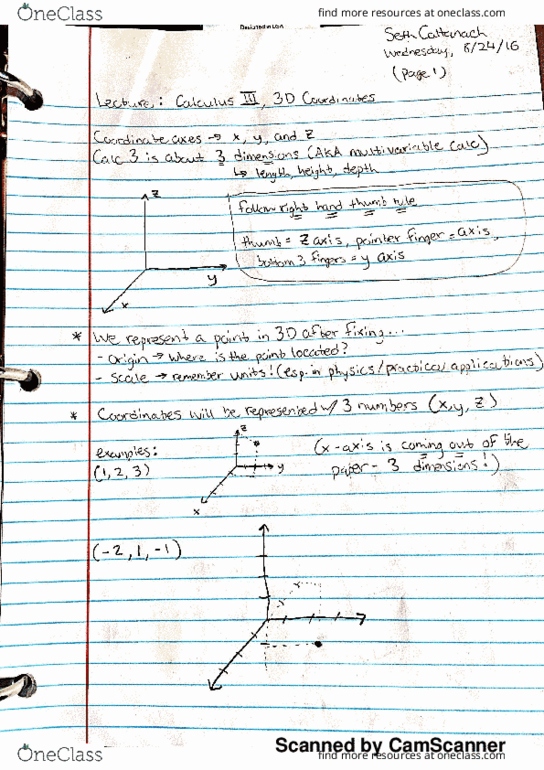 OneClass
find more resources at oneclass.com
Seth Cattanach
Wednesday, 8/24/16
(page 1)
Lecture: Calculus III, 3D Coordinates
Coordinate axes → x, y, and z
Calc 3 is about 3 dimensions (AKA multivariable calc)
↳ length, height, depth
z
y
x
follow right hand thumb rule
thumb = z axis, pointer finger = axis,
bottom 3 fingers = y axis
* We represent a point in 3D after fixing...
- Origin → where is the point located?
- Scale → remember units! (esp. in physics/practical applications)
* Coordinates will be represented w/ 3 numbers (x,y,z)
examples:
(1, 2, 3)
z
y
x
(x-axis is coming out of the
paper - 3 dimensions!)
(-2, 1, -1)
Scanned by CamScanner
OneClass
find more resources at oneclass.com